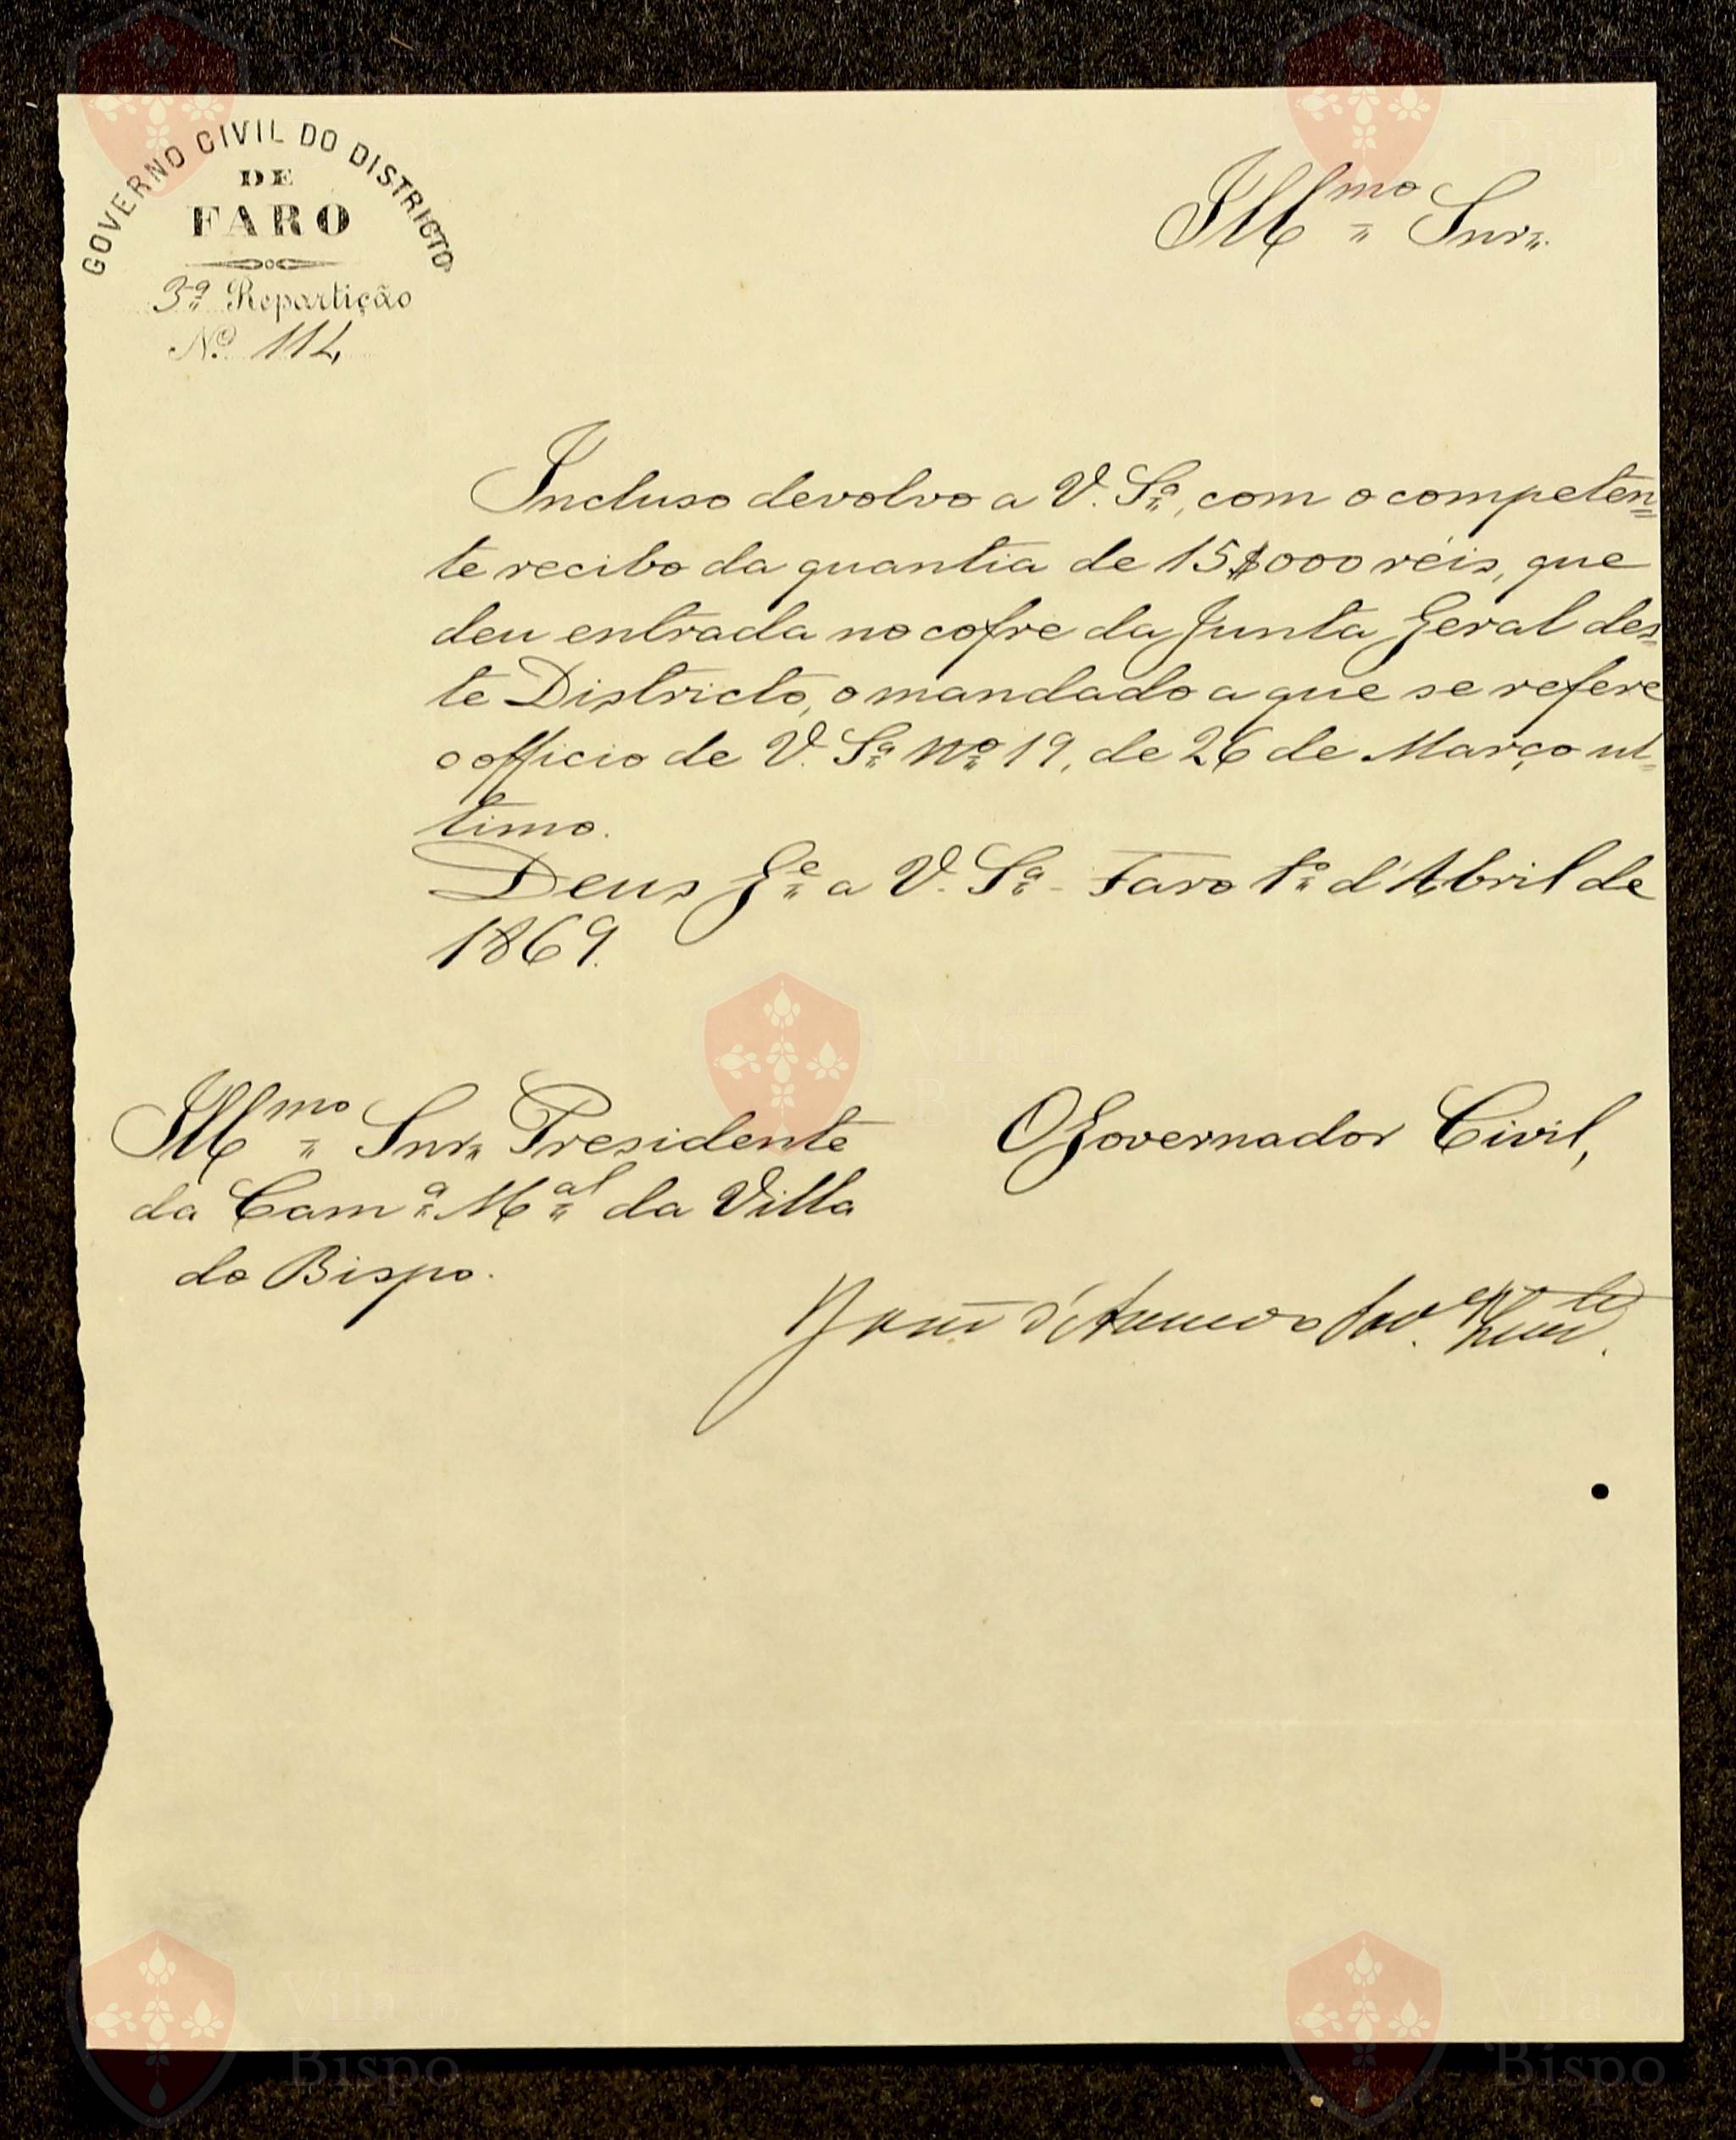 GOVERNO CIVIL DO DISTRICTO
DE
FARO
3ª Repartição
Nº 114
Illmo Snr.
Incluso devolvo a V. Sª, com o competen=
te recibo da quantia de 15$000 réis, que
deu entrada no cofre da Junta Geral des=
te Districto, o mandado a que se refere
o officio de V. Sª Nº 19, de 26 de Março ul=
timo.
Deus Ge a V. Sª - Faro 1º d'Abril de
1869.
Illmo Snr. Presidente
da Camª Mal da Villa
do Bispo.
O Governador Civil,
José d'
Vila do
Bispo
Vila do
Bispo